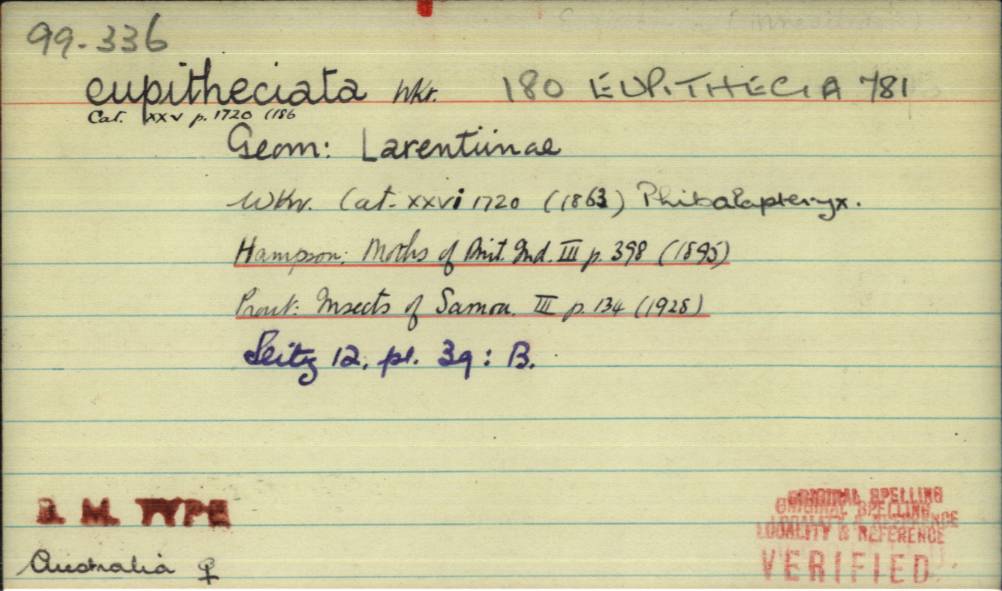 99-336
eupitheciata Wkr. 180 EUPITHECIA 781
Cat. xxv p. 1720 (186
Geom: Larentiinae
Wkr. Cat. xxvi 1720 (1863) Phibalapteryx.
Hampson: Moths of Brit. Ind. III p. 398 (1895)
Prout: Insects of Samoa. III p. 134 (1928)
Seitz 12. pl. 39: B.
B. M. TYPE
ORIGINAL SPELLING
LOCALITY & REFERENCE
VERIFIED
Australia ♀